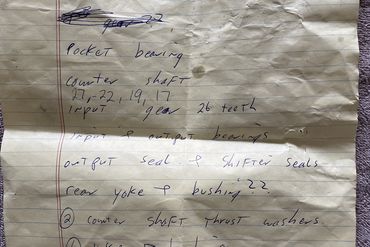 gear ??
Pocket bearing
counter shaft
27, -22, 19, 17
input gear 26 teeth
input & output bearings
output seal & shifter seals
rear yoke & bushing ??
② counter shaft thrust washers